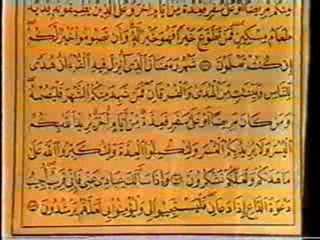 مِنكُم مَّرِيضًا أَوْ عَلَىٰ سَفَرٍ فَعِدَّةٌ مِّنْ أَيَّامٍ أُخَرَ وَعَلَى الَّذِينَ يُطِيقُونَهُ فِدْيَةٌ
طَعَامُ مِسْكِينٍ فَمَن تَطَوَّعَ خَيْرًا فَهُوَ خَيْرٌ لَّهُ وَأَن تَصُومُوا خَيْرٌ لَّكُمْ
إِن كُنتُمْ تَعْلَمُونَ شَهْرُ رَمَضَانَ الَّذِي أُنزِلَ فِيهِ الْقُرْآنُ هُدًى
لِّلنَّاسِ وَبَيِّنَٰتٍ مِّنَ الْهُدَىٰ وَالْفُرْقَانِ فَمَن شَهِدَ مِنكُمُ الشَّهْرَ فَلْيَصُمْهُ
وَمَن كَانَ مَرِيضًا أَوْ عَلَىٰ سَفَرٍ فَعِدَّةٌ مِّنْ أَيَّامٍ أُخَرَ يُرِيدُ اللَّهُ بِكُمُ
الْيُسْرَ وَلَا يُرِيدُ بِكُمُ الْعُسْرَ وَلِتُكْمِلُوا الْعِدَّةَ وَلِتُكَبِّرُوا اللَّهَ عَلَىٰ
مَا هَدَىٰكُمْ وَلَعَلَّكُمْ تَشْكُرُونَ وَإِذَا سَأَلَكَ عِبَادِي عَنِّي فَإِنِّي قَرِيبٌ أُجِيبُ
دَعْوَةَ الدَّاعِ إِذَا دَعَانِ فَلْيَسْتَجِيبُوا لِي وَلْيُؤْمِنُوا بِي لَعَلَّهُمْ يَرْشُدُونَ